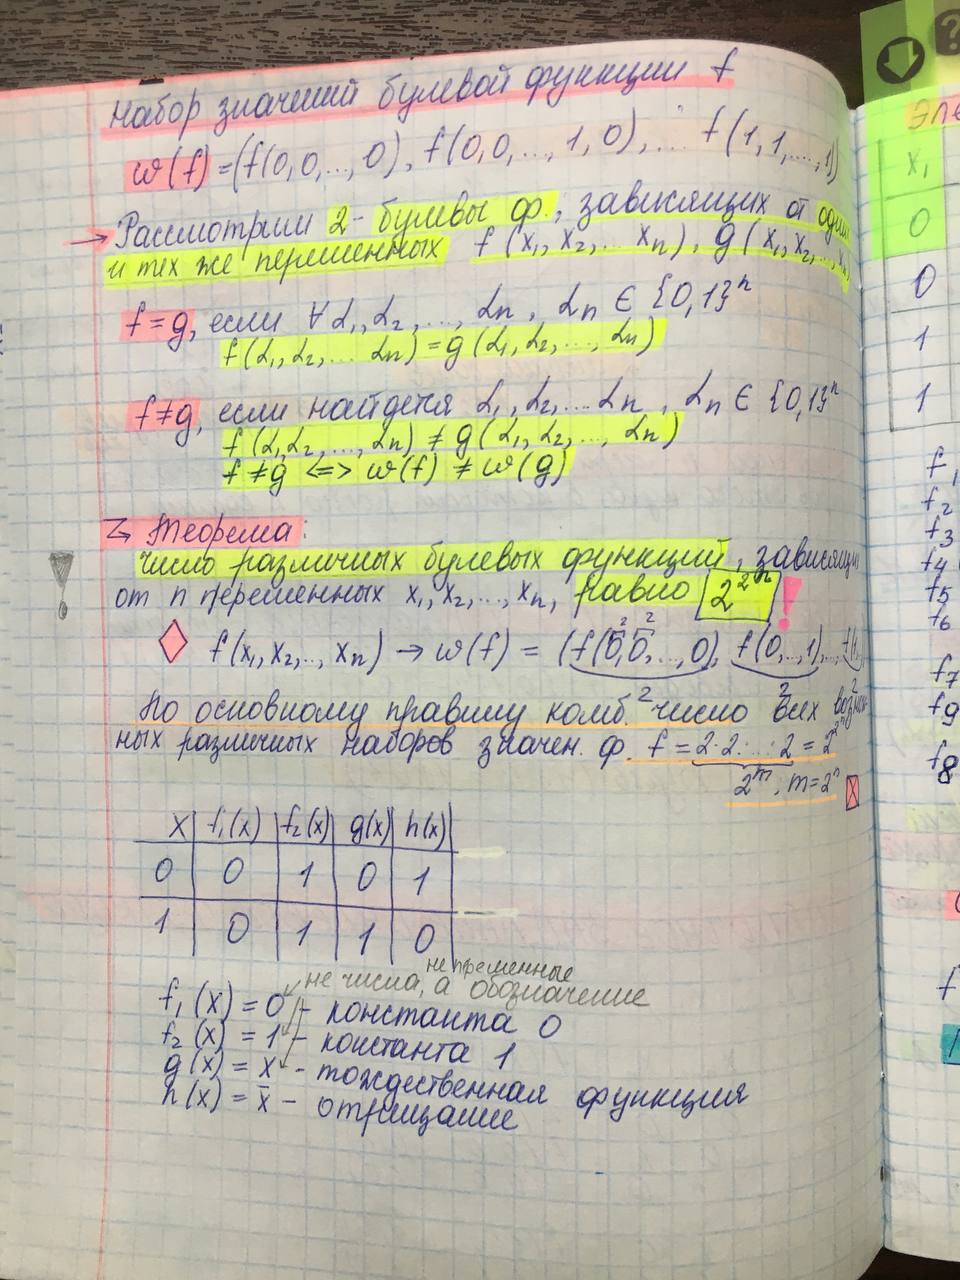 Набор значений булевой функции f
w(f)=(f(0,0,...,0), f(0,0,...,1,0),... f(1,1,...,1)
→ Рассмотрим 2- булевы ф., зависящих от одних
и тех же переменных f(x₁, x₂, ... xₙ), g(x₁, x₂, ..., xₙ)
f=g, если ∀ α₁, α₂, ..., αₙ, αₙ ∈ {0,1}ⁿ
f(α₁, α₂, ... αₙ) = g(α₁, α₂, ..., αₙ)
f≠g, если найдется α₁, α₂, ... αₙ, αₙ ∈ {0,1}ⁿ
f(α₁, α₂, ..., αₙ) ≠ g(α₁, α₂, ..., αₙ)
f≠g <=> w(f) ≠ w(g)
Теорема:
число различных булевых функций, зависящих
от n переменных x₁, x₂, ..., xₙ, равно 2^2^n !
2 2
f(x₁, x₂, .., xₙ) → w(f) = (f(0,0,...,0), f(0,...,1),..., f(1,
2 2 2
По основному правилу комб. число всех возмож-
ных различных наборов значен. ф. f = 2·2·...·2 = 2^2^n
2^m, m=2ⁿ
x f₁(x) f₂(x) g(x) h(x)
0 0 1 0 1
1 0 1 1 0
не переменные
не числа, а обозначение
f₁(x) = 0 - константа 0
f₂(x) = 1 - константа 1
g(x) = x - тождественная функция
h(x) = x̄ - отрицание
эле
x₁
0
0
1
1
f₁
f₂
f₃
f₄
f₅
f₆
f₇
f₉
f₈
f